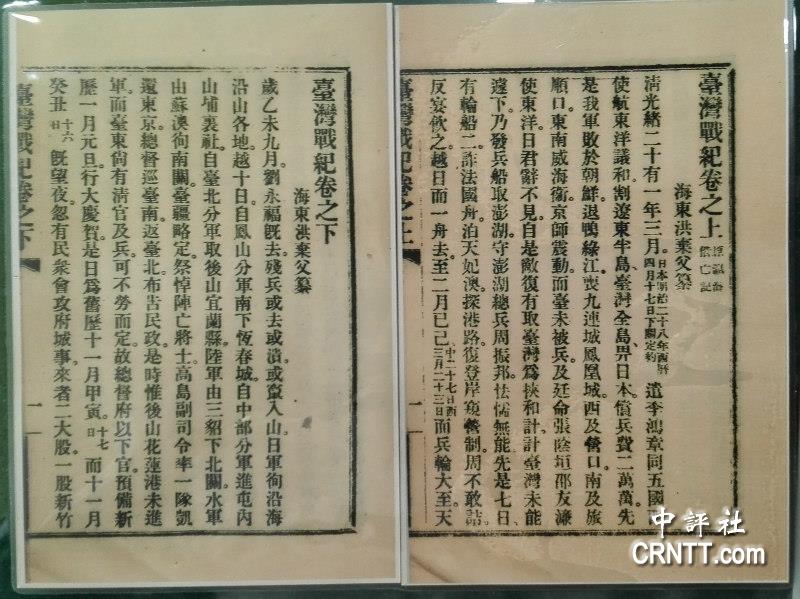 臺灣戰紀卷之上 原瀛海偕亡記
海東洪棄父纂
清光緒二十有一年三月。日本明治二十八年西曆四月十七日下關定約遣李鴻章同五國
使航東洋議和。割遼東半島、臺灣全島、畀日本。償兵費二萬萬。先
是我軍敗於朝鮮。退鴨綠江。喪九連城鳳凰城。西及營口。南及旅
順口。東南威海衞。京師震動。而臺未被兵。及廷命張陰垣邵友濂
使東洋。日君辭不見。自是敵復有取臺灣爲挾和計。計臺灣未能
遽下。乃發兵船取澎湖。守澎湖總兵周振邦怯懦無能。先是七日、
有輪船二。詐法國舟。泊天妃澳。探港路。復登岸窺營制。周不敢詰。
反宴飮之。越日而一舟去。至二月已己中二十七日西三月二十三日而兵輪大至。天
臺灣戰紀卷之上
一
臺灣戰紀卷之下
海東洪棄父纂
歲乙未九月。劉永福旣去。殘兵或去或潰或竄入山。日軍徇沿海
沿山各地。越十日。自鳳山分軍南下恆春城。自中部分軍進屯內
山埔裏社。自臺北分軍取後山宜蘭縣。陸軍由三貂下北關。水軍
由蘇澳徇南關。臺疆略定。祭悼陣亡將士。高島副司令率一隊凱
還東京。總督巡臺南。返臺北。布告民政。是時惟後山花蓮港未進
軍。而臺東尙有清官及兵。可不勞而定。故總督府以下官。預備新
歷一月元旦。行大慶賀。是日爲舊歷十一月甲寅。十七日而十一月
癸丑十六日旣望夜。忽有民衆會攻府城事。來者二大股。一股新竹
臺灣戰紀卷之下
一
中評社
CRNTT.com